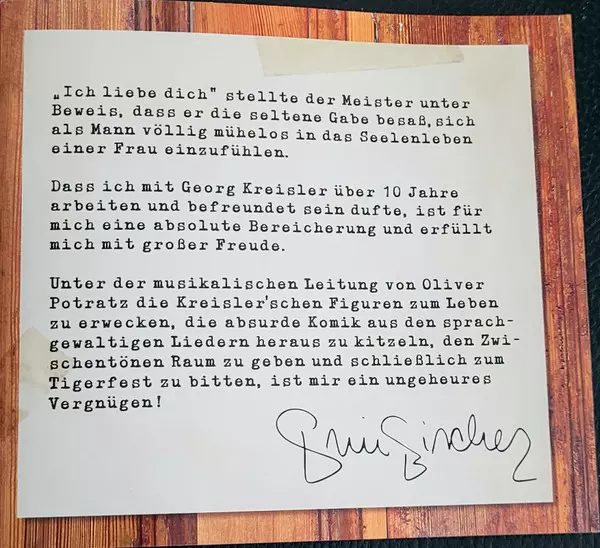 „Ich liebe dich" stellte der Meister unter
Beweis, dass er die seltene Gabe besaß, sich
als Mann völlig mühelos in das Seelenleben
einer Frau einzufühlen.
Dass ich mit Georg Kreisler über 10 Jahre
arbeiten und befreundet sein dufte, ist für
mich eine absolute Bereicherung und erfüllt
mich mit großer Freude.
Unter der musikalischen Leitung von Oliver
Potratz die Kreisler'schen Figuren zum Leben
zu erwecken, die absurde Komik aus den sprach-
gewaltigen Liedern heraus zu kitzeln, den Zwi-
schentönen Raum zu geben und schließlich zum
Tigerfest zu bitten, ist mir ein ungeheures
Vergnügen!